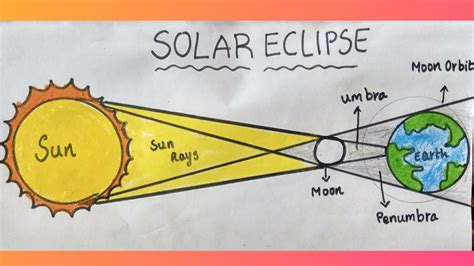 SOLAR ECLIPSE
Moon Orbit
umbra
Sun
Sun
Rays
Earth
Moon
Penumbra